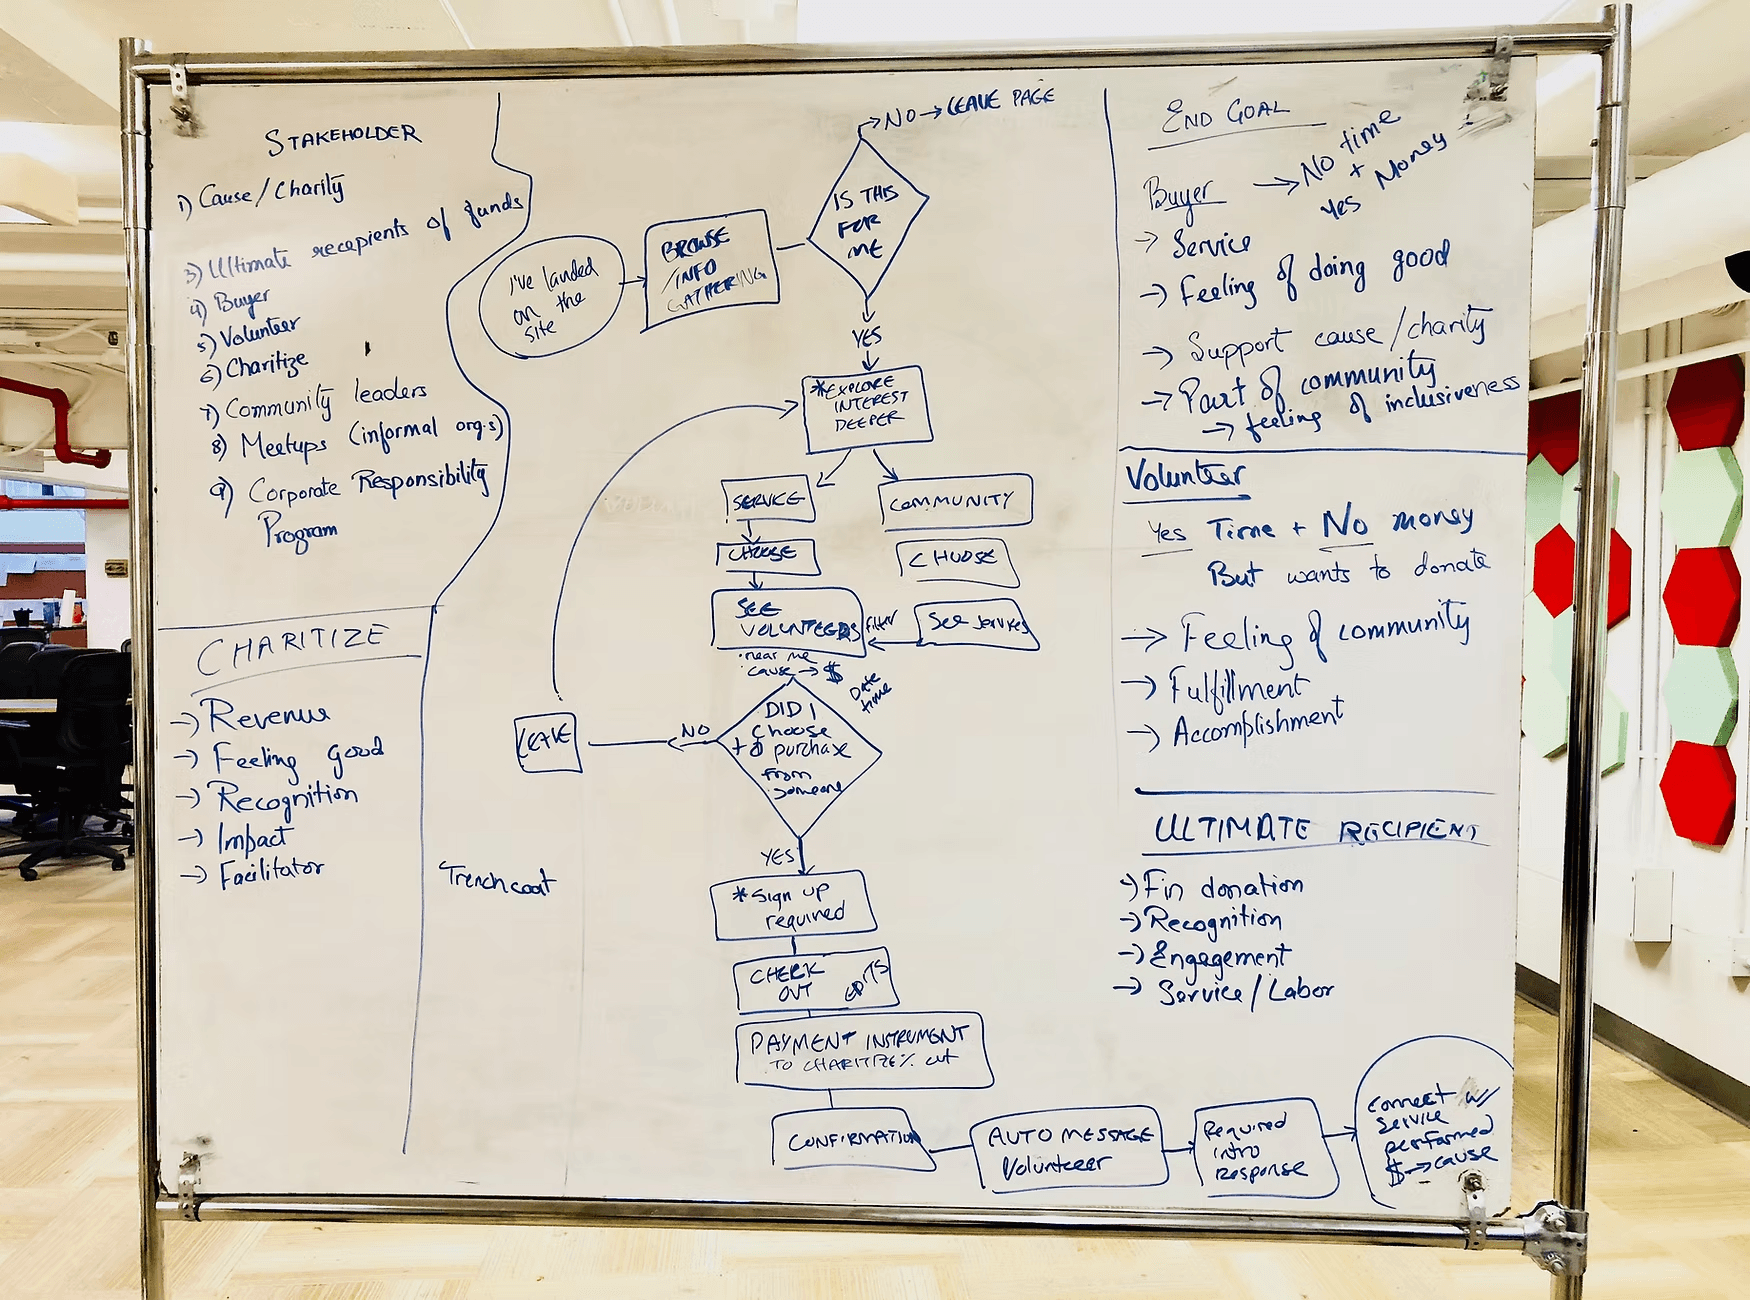 STAKEHOLDER
1) Cause/Charity
3) Ultimate recepients of funds
4) Buyer
5) Volunteer
6) Charitize
7) Community leaders
8) Meetups (informal org.s)
9) Corporate Responsibility
Program
CHARITIZE
→ Revenue
→ Feeling good
→ Recognition
→ Impact
→ Facilitator
Trenchcoat
I've landed
on the
site
BROWSE
/INFO
GATHERING
IS THIS
FOR
ME
NO → LEAVE PAGE
YES
*EXPLORE
INTEREST
DEEPER
SERVICE
CHOOSE
SEE
VOLUNTEERS
COMMUNITY
CHOOSE
See services
filter
near me
cause → $
Date
time
DID I
choose
to purchase
from
someone
NO
LEAVE
YES
*Sign up
required
CHECK
OUT
PAYMENT INSTRUMENT
TO CHARITIZE % cut
CONFIRMATION
AUTO MESSAGE
Volunteer
Required
intro
response
connect w/
service
performed
$ → cause
END GOAL
Buyer → No time
+
yes Money
→ Service
→ Feeling of doing good
→ Support cause/charity
→ Part of community
→ feeling of inclusiveness
Volunteer
Yes Time + No money
But wants to donate
→ Feeling of community
→ Fulfillment
→ Accomplishment
ULTIMATE RECIPIENT
→ Fin donation
→ Recognition
→ Engagement
→ Service/Labor